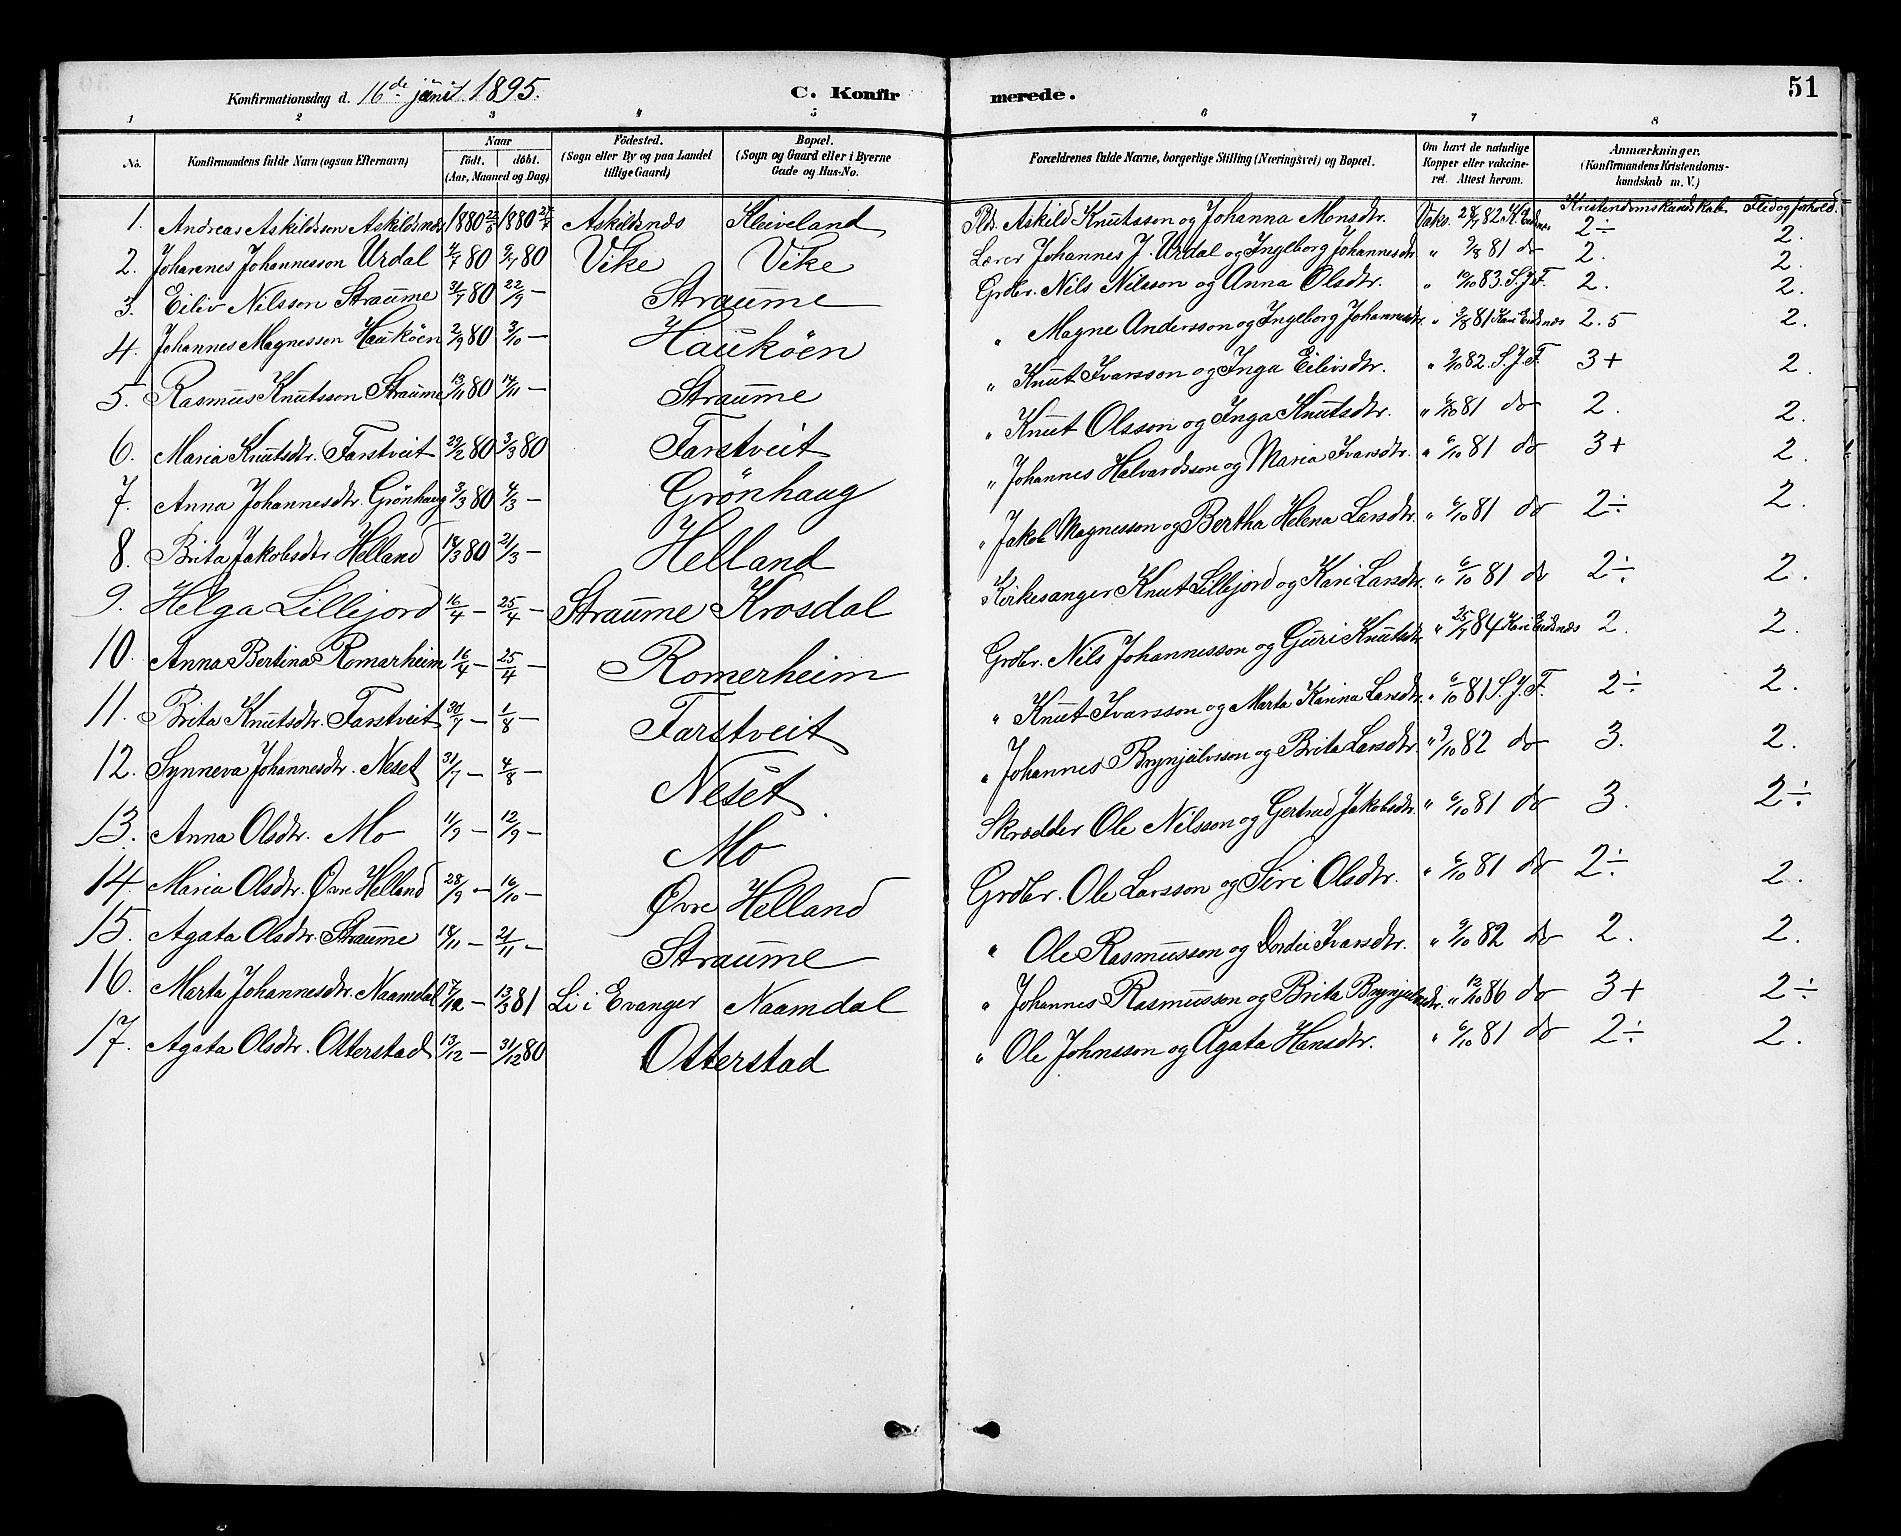 51
Konfirmationsdag d. 16de juni 1895. C. Konfir merede.
1 2 3 4 5 6 7 8
No. Konfirmandens fulde Navn (ogsaa Efternavn) Naar födt. döbt. (Aar, Maaned og Dag) Födested. (Sogn eller By og paa Landet tillige Gaard) Bopæl. (Sogn og Gaard eller i Byerne Gade og Hus-No. Forældrenes fulde Navne, borgerlige Stilling (Næringsvei) og Bopæl. Om havt de naturlige Kopper eller vakcineret. Attest herom. Anmærkninger. (Konfirmandens Kristendomskundskab m. V.)
Kristendomskundskab Flid og forhold.
1. Andreas Askildsson Askildsnes 1880 1880 Askildsnes Kleiveland Askild Knutsson og Johanna Monsdtr. Vaks. 82 2÷ 2.
2. Johannes Johannesson Urdal 80 80 Vike Vike Lærer Johannes J. Urdal og Ingeborg Johannesdtr. " 9/8 81 do 2. 2.
3. Eiliv Nilsson Straume 31/7 80 22/9 — Straume Grdbr. Nils Nilsson og Anna Olsdtr. " 10/10 83. S.J.F. 2. 2.
4. Johannes Magnesson Hauköen 2/9 80 3/10 — Hauköen " Magne Andersson og Ingeborg Johannesdtr. " 9/8 81 Kari Eidsnes 2.5 2.
5. Rasmus Knutsson Straume 13/11 80 14/11 — Straume " Knut Ivarsson og Inga Eilivsdtr. " 9/10 82. S.J.F. 3+ 2.
6. Maria Knutsdtr. Farstveit 29/2 80 3/3 80 Farstveit " Knut Olsson og Inga Knutsdtr. " 6/10 81 do 2. 2.
7. Anna Johannesdtr. Grönhaug 3/3 80 4/3 — Grönhaug " Johannes Halvardsson og Maria Ivarsdtr. " 6/10 81 do 3+ 2.
8. Brita Jakobsdtr Helland 14/3 80 21/3 — Helland " Jakob Magnesson og Bertha Helena Larsdtr. " 6/10 81 do 2÷ 2.
9. Helga Lillejord 16/4 — 25/4 — Straume Krosdal Kirkesanger Knut Lillejord og Kari Larsdtr. " 6/10 81 do 2÷ 2.
10. Anna Bertina Romarheim 16/4 — 25/4 — Romerheim Grdbr. Nils Johannesson og Guri Knutsdtr. " 84 Kari Eidsnes 2. 2.
11. Brita Knutsdtr. Farstveit 30/7 — 1/8 — Farstveit " Knut Ivarsson og Marta Karina Larsdtr. " 6/10 81 S.J.F. 2÷ 2.
12. Synneva Johannesdtr. Neset 31/7 — 4/8 — Neset " Johannes Brynjulvsson og Brita Larsdtr. " 9/10 82 do 3. 2.
13. Anna Olsdtr. Mo 11/9 — 12/9 — Mo Skrædder Ole Nilsson og Gertrud Jakobsdtr. " 6/10 81 do 3. 2÷
14. Maria Olsdtr. Øvre Helland 28/9 — 16/10 — Øvre Helland Grdbr. Ole Larsson og Siri Olsdtr. " 6/10 81 do 2÷ 2.
15. Agata Olsdtr. Straume 18/11 — 21/11 — Straume " Ole Rasmusson og Dordei Ivarsdtr. " 9/10 82 do 2. 2.
16. Marta Johannesdtr. Naamdal 7/12 — 13/3 81 Li i Evanger Naamdal " Johannes Rasmusson og Brita Brynjulvsdtr. " 86 do 3+ 2÷
17. Agata Olsdtr. Otterstad 13/12 — 31/12 80 Otterstad " Ole Johnsson og Agata Hansdtr. " 6/10 81 do 2÷ 2.